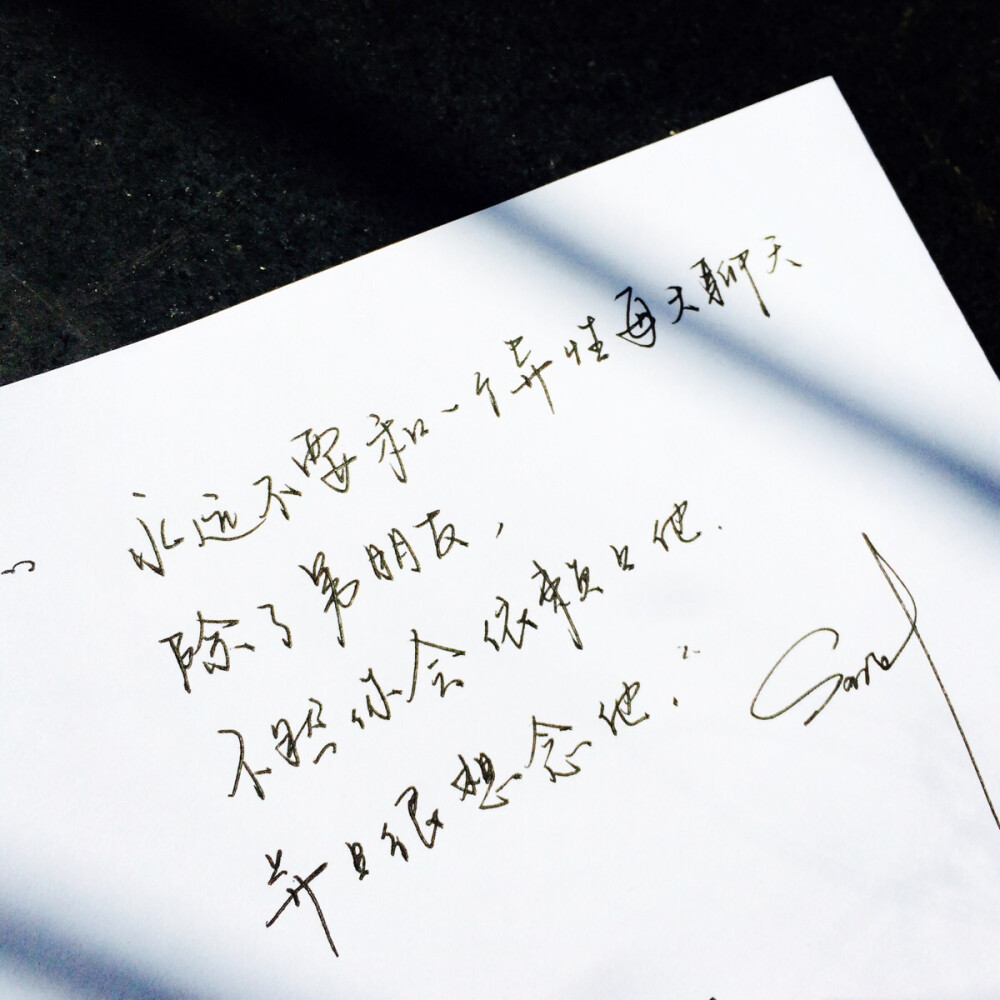 永远不要和一个异性每天聊天
除了男朋友,
不然你会依赖上他.
并且很想念他.